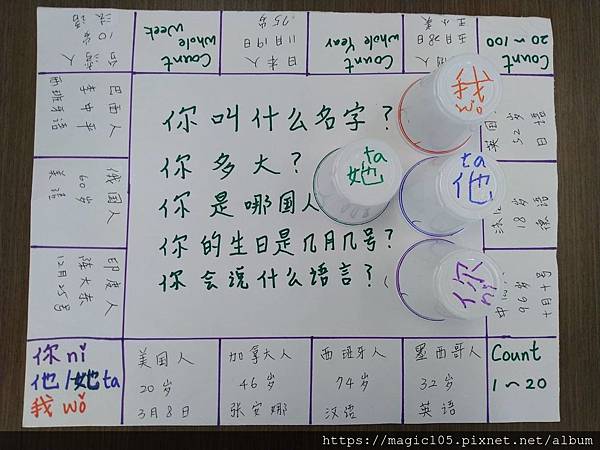 Count
whole
Week
台湾人
10岁
法语
日本人
11月19日
75岁
Count
whole Year
王小美
五月28日
Count
20~100
巴西人
李中平
西班牙语
俄国人
60岁
美语
印度人
陈大东
12月25号
你叫什么名字？
你多大？
你是哪国人
你的生日是几月几号？
你会说什么语言？
我
wǒ
ta
她
ta
他
你
ni
英国
52岁
日语
18岁
德语
96岁
十月十号
你 nǐ
他/她 ta
我 wǒ
美国人
20岁
3月8日
加拿大人
46岁
张安娜
西班牙人
74岁
汉语
墨西哥人
32岁
英语
Count
1~20
https://magic105.pixnet.net/album